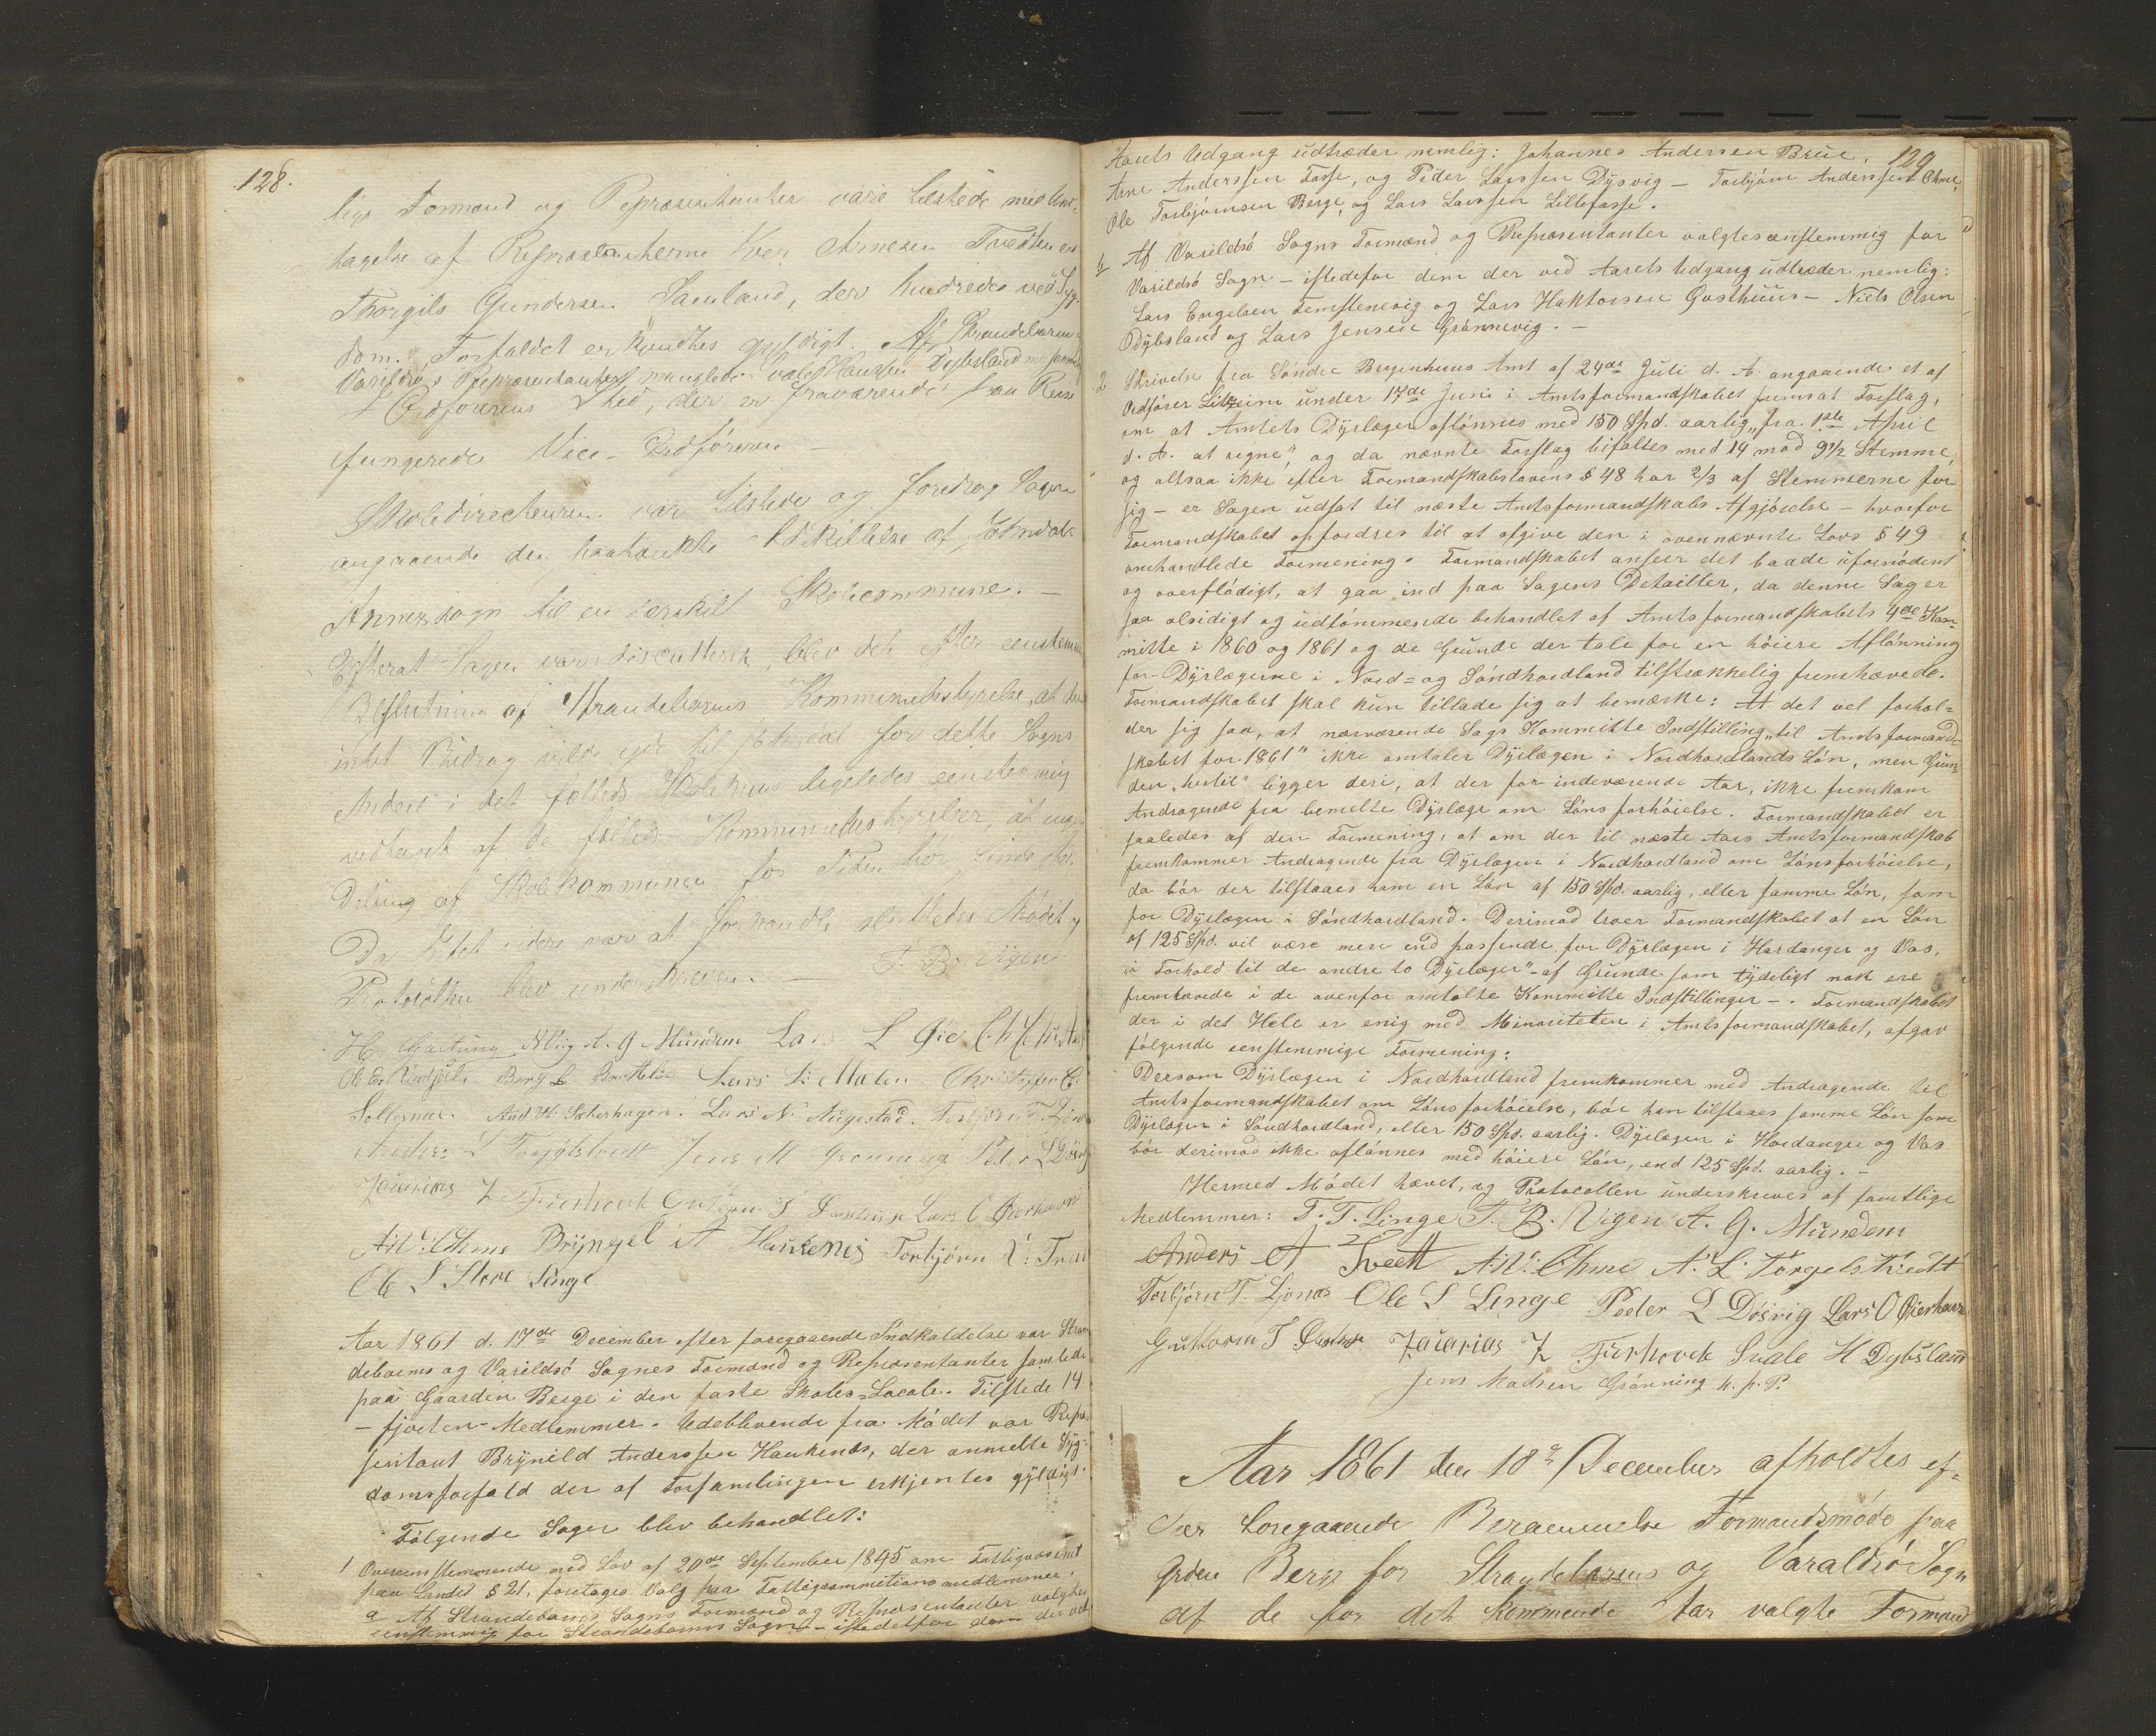 128.
lige Formænd og Repræsentanter vare tilstede med Und-
tagelse af Repræsentanterne Iver Arnesen Tvedten og
Thorgils Gundersen Samland, der hindredes ved Syg-
dom. Forfaldet erkjendtes gyldigt. Af Strandebarm og
Varildsø Repræsentanter manglede Hansen Dybsland
I Ordførerens Sted, der er fraværende paa Reise
fungerede Vice-Ordføreren —
Skoledirecteuren var tilstede og foredrog Sagen
angaaende den paatænkte Udskillelse af Jondals
Annexsogn til en særskilt Skolecommune. —
Efterat Sagen var discutteret, blev det efter eenstemmig
Beslutning af Strandebarms Kommunebestyrelse, at
intet Bidrag vilde yde til Jondal for dette Sogns
Andeel i det fælleds ligeledes eenstemmig
vedtaget af de fælleds Kommunebestyrelser, at ingen
Deling af Skolekommunen for Tiden bør finde Sted.
Da Intet videre var at forhandle sluttedes Mødet og
Protocollen blev underskreven. — T. B. Vigen
H. Gartung A. G. Mundem Lars L Øie
Ole E. Berg L. Lars L. Christopher C.
Solesnæs. And H. Lars N. Augestad. Torbjørn T. Ljones
Anders L Torsgelstvedt Jens M Grønning Peder L Døsvig
Zacarias Z Fierhovek Guttorm T Lars O Øierhavn
A. Ohme Brÿngel A Haukenes Torbjørn
Ole L Store Linge
Aar 1861 d. 17de December efter foregaaende Indkaldelse var Stran-
debarms og Varildsø Sognes Formænd og Repræsentanter samlede
paa Gaarden Berge i den faste Skoles-Locale. Tilstede 14
- fjorten - Medlemmer. Udeblivende fra Mødet var Repræ-
sentant Brÿnild Anderssen Haukenæs, der anmeldte Syg-
domsforfald der af Forsamlingen erkjentes gÿldigt.
Følgende Sager blev behandlet:
1 Overeensstemmende med Lov af 20de September 1845 om Fattigvæsenet
paa Landet § 21, foretages Valg paa Fattigcommitionsmedlemmer.
a Af Strandebarms Sogns Formænd og Repræsentanter valgtes
eenstemmig for Strandebarms Sogn - istedetfor dem der ved
129
Aarets Udgang udtræder nemlig: Johannes Andersen Brue,
Arne Anderssen Fosse, og Peder Larssen Dÿsvig — Torbjørn Anderssen Ohme,
Ole Torbjørnsen Berge, og Lars Larssen Lillefosse.
b Af Varildsø Sogns Formænd og Repræsentanter valgtes eenstemmig for
Varildsø Sogn - istedefor dem der ved Aarets Udgang udtræder nemlig:
Lars Engelsen Femstenevig og Lars Haktorsen Gosthuus - Niels Olsen
Dÿbsland og Lars Jensen Grønnevig. —
2 Skrivelse fra Søndre Bergenhuus Amt af 24de Juli d. A. angaaende et af
Ordfører Litzeim under 17de Juni i Amtsformandskabet fremsat Forslag,
om at Amtets Dÿrlæger aflønnes med 150 Spd. aarlig „fra 1ste April
d. A. at regne", og da nævnte Forslag bifaltes med 14 mod 9½ Stemme,
og altsaa ikke efter Formandskabslovens § 48 har 2/3 af Stemmerne for
sig - er Sagen udsat til næste Amtsformandskabs Afgjørelse - hvorfor
Formandskabet opfordres til at afgive den i ovennævnte Lovs § 49
omhandlede Formening. Formandskabet anseer det baade ufornødent
og overflødigt, at gaa ind paa Sagens Detailler, da denne Sag er
saa alsidigt og udtømmende behandlet af Amtsformandskabets 4de Kom-
mitte i 1860 og 1861 og de Grunde der tale for en høiere Aflønning
for Dÿrlægerne i Nord- og Søndhordland tilstrækkelig fremhævede.
Formandskabet skal kun tillade sig at bemærke: At det vel forhol-
der sig saa, at nærværende Sags Kommitte Indstilling „til Amtsformand-
skabet for 1861" ikke omtaler Dÿrlægen i Nordhordlands Løn, men Grun-
den „hertil" ligger deri, at der for indeværende Aar, ikke fremkom
Andragende fra bemelte Dÿrlæge om Lønsforhøielse. Formandskabet er
saaledes af den Formening, at om der til næste Aars Amtsformandskab
fremkommer Andragende fra Dÿrlægen i Nordhordland om Lønsforhøielse,
da bør der tilstaaes ham en Løn af 150 Spd. aarlig, eller samme Løn, som
for Dÿrlægen i Søndhordland. Derimod troer Formandskabet at en Løn
af 125 Spd. vil være mere end passende for Dÿrlægen i Hardanger og Vos,
„i Forhold til de andre to Dÿrlæger" - af Grunde som tÿdeligt nok ere
fremhævede i de ovenfor omtalte Kommitte Indstillinger -. Formandskabet
der i det Hele er enig med Minoriteten i Amtsformandskabet, afgav
følgende eenstemmige Formening:
Dersom Dÿrlægen i Nordhordland fremkommer med Andragende til
Amtsformandskabet om Lønsforhøielse, bør han tilstaaes samme Løn som
Dÿrlægen i Søndhordland, eller 150 Spd. aarlig. Dÿrlægen i Hardanger og Vos
bør derimod ikke aflønnes med høiere Løn, end 125 Spd. aarlig. —
Hermed Mødet hævet, og Protocollen underskreves af samtlige
Medlemmer: T. T. Linge T. B. Vigen A. G. Mundem
Anders A Tveitt A. Ohme A. L. Torgelstviedt
Torbjørn T. Ljones Ole L Linge Peder L Døsvig Lars O Øierhavn
Guttorm T Zacarias Z Fierhovek Siale H Dybsland
Jens Madsen Grønning m. p. P.
Aar 1861 den 18de December afholdtes ef-
ter foregaaende Berammelse Formandsmøde paa
Grden Berge for Strandebarms og Varaldsø Sogn
af de for det kommende Aar valgte Formænd